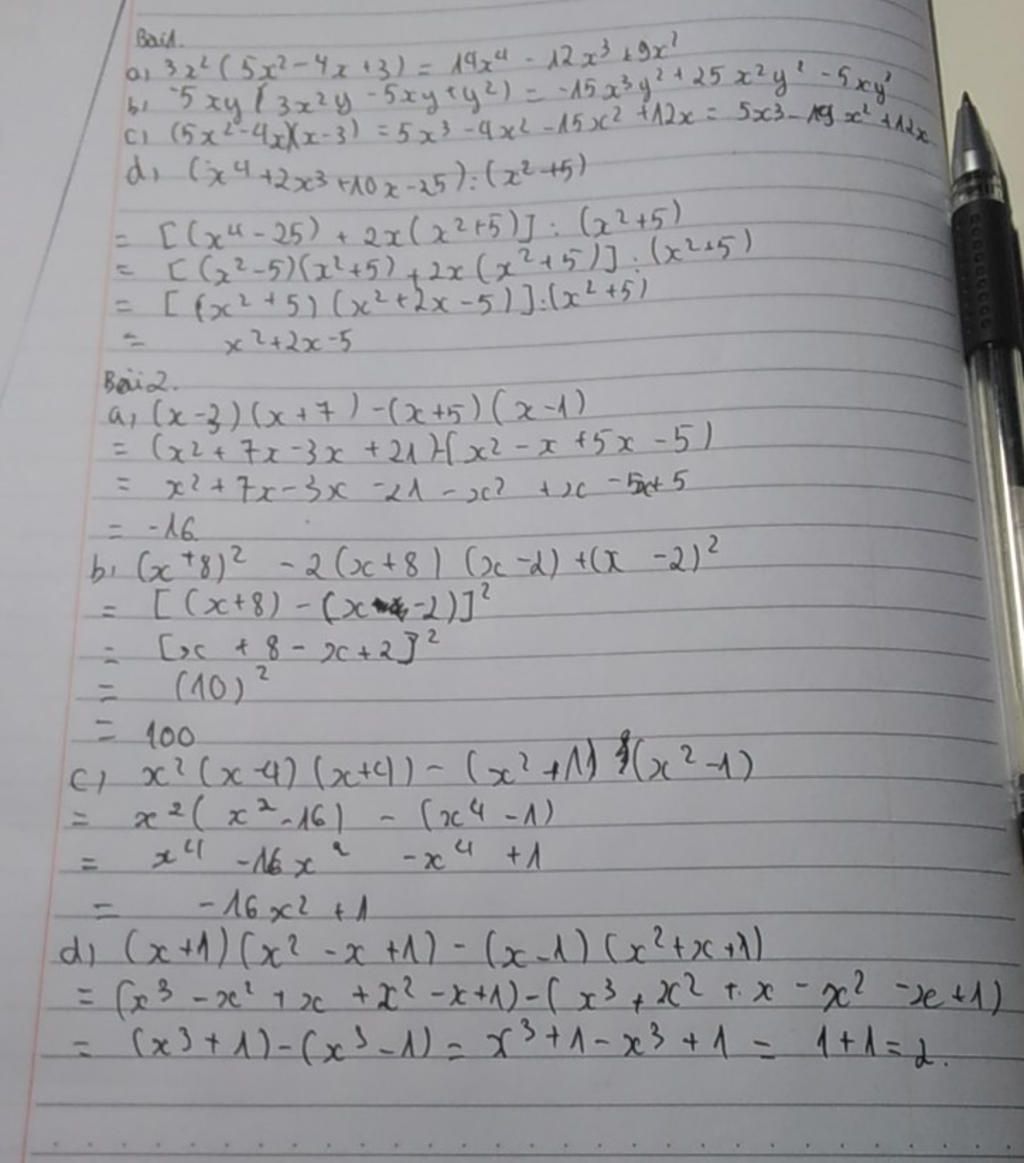 Bài 1.
a, 3x²(5x²-4x+3) = 14x⁴ - 12x³+9x²
b, -5xy(3x²y -5xy+y²) = -15x³y²+25x²y² -5xy³
c, (5x²-4x)(x-3) = 5x³-4x²-15x²+12x = 5x3-19x²+12x
d, (x⁴+2x³+10x-25):(x²+5)
= [(x⁴-25) + 2x(x²+5)] : (x²+5)
= [(x²-5)(x²+5)+2x(x²+5)] : (x²+5)
= [(x²+5)(x²+2x-5)]:(x²+5)
= x²+2x-5
Bài 2.
a, (x-3)(x+7)-(x+5)(x-1)
= (x²+7x-3x+21)-(x²-x+5x-5)
= x²+7x-3x-21-x²+x-5x+5
= -16
b, (x+8)² -2(x+8)(x-2)+(x-2)²
= [(x+8)-(x-2)]²
= [x+8-x+2]²
= (10)²
= 100
c, x²(x-4)(x+4)-(x²+1)(x²-1)
= x²(x²-16) - (x⁴-1)
= x⁴ -16x² -x⁴ +1
= -16x²+1
d, (x+1)(x²-x+1)-(x-1)(x²+x+1)
= (x³-x²+x+x²-x+1)-(x³+x²+x-x²-x+1)
= (x³+1)-(x³-1) = x³+1-x³+1 = 1+1=2.